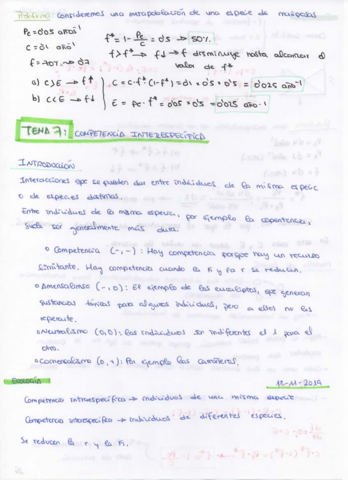 Problema: Consideremos una metapoblación de una especie de mariposas
Pe = 0'05 años⁻¹
C = 0'1 año⁻¹
f = 70% → 0'7
f* = 1 - Pe/C = 0'5 → 50%
f > f* → f↓ → f disminuye hasta alcanzar el
valor de f*
a) C > E → f↑
b) C < E → f↓
C = c·f*(1-f*) = 0'1 × 0'5 × 0'5 = 0'025 año⁻¹
E = pe · f* = 0'05 × 0'5 = 0'025 año⁻¹
TEMA 7: COMPETENCIA INTERESPECÍFICA
INTRODUCCIÓN
Interacciones que se pueden dar entre individuos de la misma especie
o de especies distintas.
Entre individuos de la misma especie, por ejemplo la competencia,
suele ser generalmente más dura.
o Competencia (-,-): Hay competencia porque hay un recurso
limitante. Hay competencia cuando la K y la r se reducen.
o Amensalismo (-,0): El ejemplo de los eucaliptos, que generan
sustancias tóxicas para algunos individuos, pero a ellos no les
repercute.
o Neutralismo (0,0): Los individuos son indiferentes el 1 para el
otro.
o Comensalismo (0,+): Por ejemplo los carroñeros.
Ecología
12-11-2019
Competencia intraespecífica → individuos de una misma especie
Competencia interespecífica → individuos de diferentes especies.
Se reducen la r y la K.